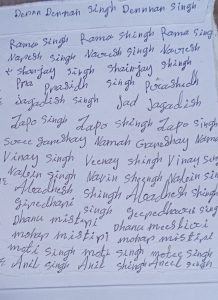 Denna Dennan Singh Dennvan Singh
Rama Singh Rama Shingh Rama Sing
Naresh Singh Naresh Singh Naresh
+ Shanjay Singh Shainjay Shingh
Pra Prasidh Singh Parashedh
Jagadish Singh Jad Jagadish
Zapo Singh Zapo Shingh Zapo Singh
Sree Ganeshay Namah Ganeshay Namah
Vinay Singh Veenay Shingh Vinay Singh
Nalin Singh Navin Sheengh Nalein Sin
Aloadhesh Shingh Aloadhesh Shingh
Singh
Dhanu mistipi Dhanu meesticri
mohap mistipi mohap mistipi
moti Singh moti Singh motee Singh
Anil Singh Anil Shingh Aneel Singh